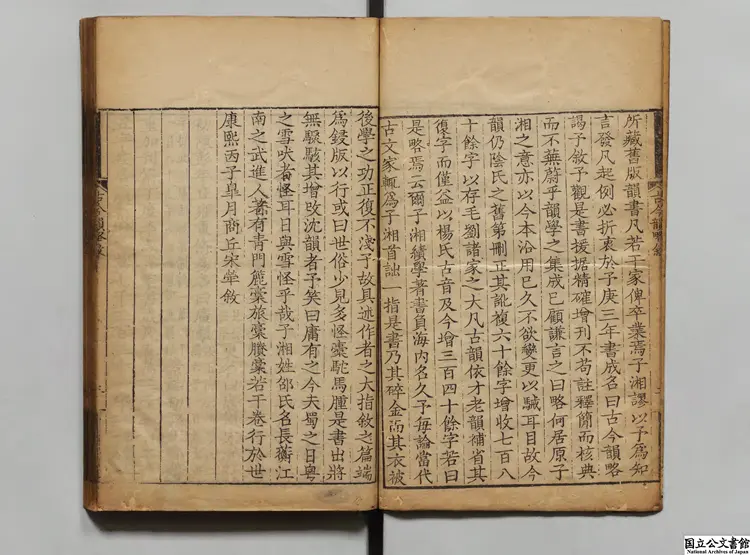 所藏舊版韻書凡若干家俾卒業焉子湘謬以予爲知
言發凡起例必折衷於予庚三年書成名曰古今韻略
謁予敘予觀是書援据精確增刊不苟註釋簡而核典
而不蕪蔚乎韻學之集成已顧謙言之曰略何居原子
湘之意亦以今本沿用已久不欲變更以駴耳目故今
韻仍陰氏之舊第刪正其訛複六十餘字增收七百八
十餘字以存毛劉諸家之大凡古韻依才老韻補省其
復字而僅益以楊氏古音及今增三百四十餘字若曰
是略焉云爾子湘績學著書負海内名久予每論當代
古文家輒爲子湘首詘一指是書乃其碎金而其衣被
後學之功正復不淺予故具述作者之大指敘之篇端
爲鋟版以行或曰世俗少見多怪橐駝馬腫是書出將
無駭其增改沈韻者予笑曰庸有之今夫蜀之日粵
之雪吠者怪耳日與雪怪乎哉子湘姓邵氏名長蘅江
南之武進人著有青門簏稾旅稾賸稾若干卷行於世
康熙丙子皋月商丘宋犖敘
国立公文書館
National Archives of Japan